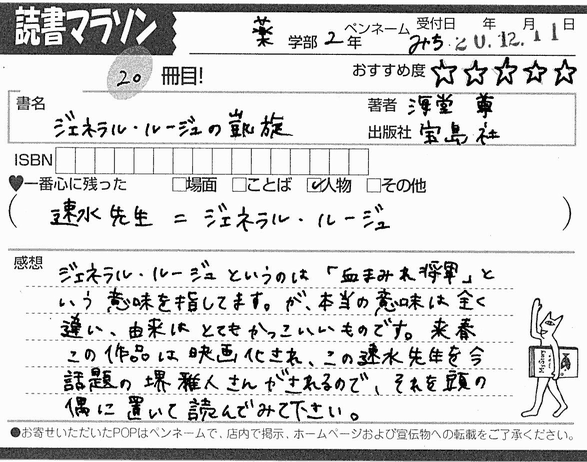 読書マラソン
薬 学部 2 年 ペンネーム みち 受付日 年 月 日 20.12.11
20 冊目!
おすすめ度 ☆☆☆☆☆
書名 ジェネラル・ルージュの凱旋
著者 海堂 尊
出版社 宝島社
ISBN
♥一番心に残った □場面 □ことば ☑人物 □その他
( 速水先生 = ジェネラル・ルージュ )
感想
ジェネラル・ルージュというのは「血まみれ将軍」と
いう意味を指してます。が、本当の意味は全く
違い、由来はとてもかっこいいものです。来春
この作品は映画化され、この速水先生を今
話題の堺雅人さんがされるので、それを頭の
偶に置いて読んでみて下さい。
●お寄せいただいたPOPはペンネームで、店内で掲示、ホームページおよび宣伝物への転載をご了承ください。